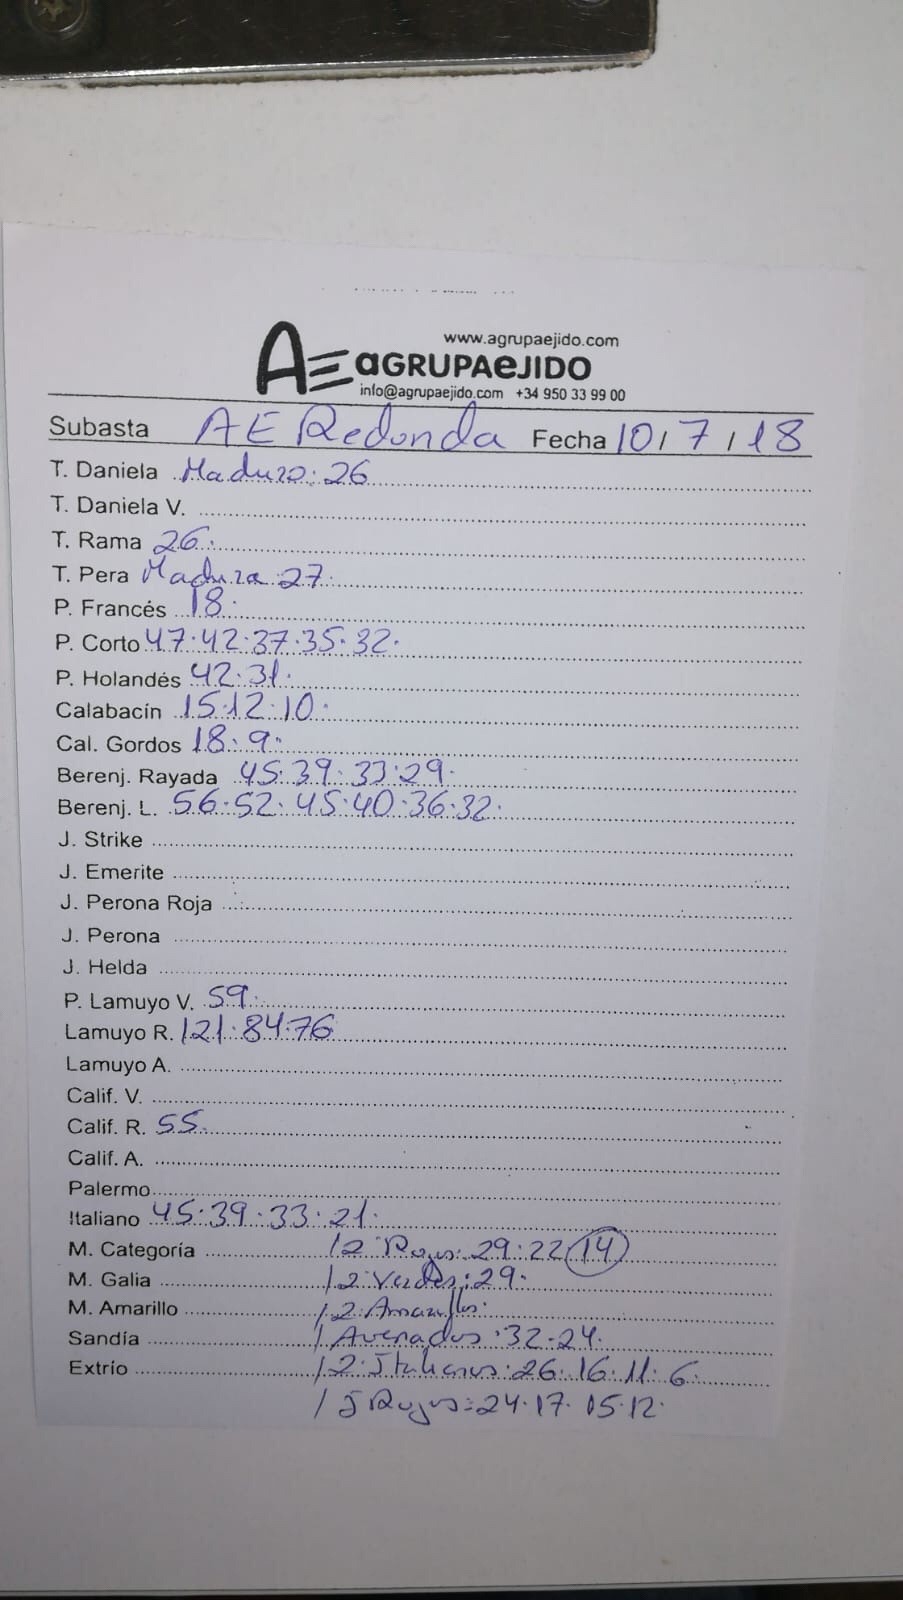 www.agrupaejido.com
AE aGRUPAeJIDO
info@agrupaejido.com +34 950 33 99 00
Subasta AE Redonda Fecha 10/7/18
T. Daniela Maduro: 26
T. Daniela V.
T. Rama 26.
T. Pera Madura 27.
P. Francés 18.
P. Corto 47.42.37.35.32.
P. Holandés 42.31.
Calabacín 15.12.10.
Cal. Gordos 18.9.
Berenj. Rayada 45.39.33.29.
Berenj. L. 56.52.45.40.36.32.
J. Strike
J. Emerite
J. Perona Roja
J. Perona
J. Helda
P. Lamuyo V. 59.
Lamuyo R. 121.84.76
Lamuyo A.
Calif. V.
Calif. R. 55.
Calif. A.
Palermo
Italiano 45.39.33.21.
M. Categoría /2 Rojos: 29.22 14
M. Galia /2 Verdes: 29.
M. Amarillo /2 Amarillos:
Sandía / Averiados: 32.24.
Extrío /2 Italianos: 26.16.11.6.
/ J Rojos: 24.17.15.12.